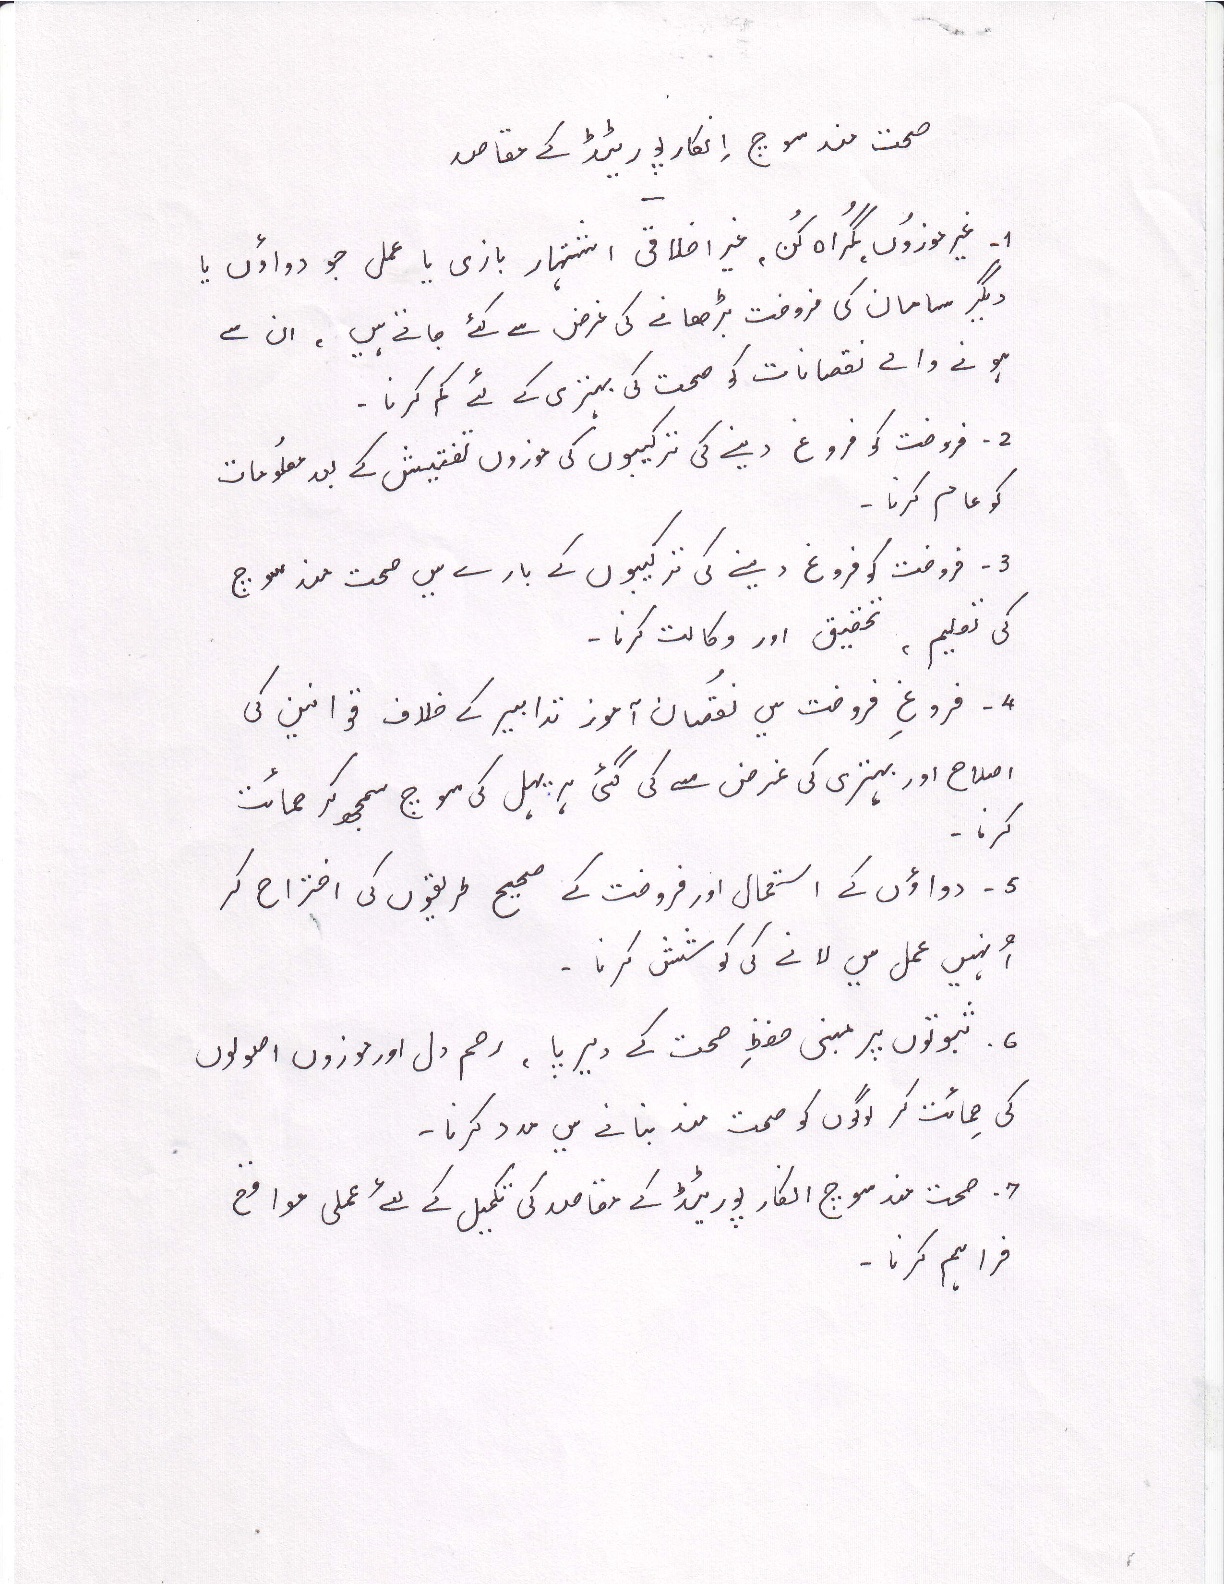 صحت مند سوچ اِنکارپوریٹڈ کے مقاصد
1- غیر موزوُں، گمُراہ کُن، غیر اخلاقی اشتہار بازی یا عمل جو دواؤں یا
دیگر سامان کی فروخت بڑھانے کی غرض سے کئے جاتے ہیں، ان سے
ہونے والے نقصانات کو صحت کی بہتری کے لئے کم کرنا۔
2- فروخت کو فروغ دینے کی ترکیبوں کی موزوں تفتیش کے بعد معلوُمات
کو عام کرنا۔
3- فروخت کو فروغ دینے کی ترکیبوں کے بارے میں صحت مند سوچ
کی تعلیم، تحقیق اور وکالت کرنا۔
4- فروغِ فروخت میں نقُصان آموز تدابیر کے خلاف قوانین کی
اصلاح اور بہتری کی غرض سے کی گئی ہر پہل کی سوچ سمجھ کر حمائت
کرنا۔
5- دواؤں کے استعمال اور فروخت کے صحیح طریقوں کی اختراح کر
اُنہیں عمل میں لانے کی کوشش کرنا۔
6. ثبوتوں پر مبنی حفظِ صحت کے دیر پا، رحم دل اور موزوں اصولوں
کی حِمائت کر لوگوں کو صحت مند بنانے میں مدد کرنا۔
7- صحت مند سوچ انکارپوریٹڈ کے مقاصد کی تکمیل کے لئے عملی مواقع
فراہم کرنا۔